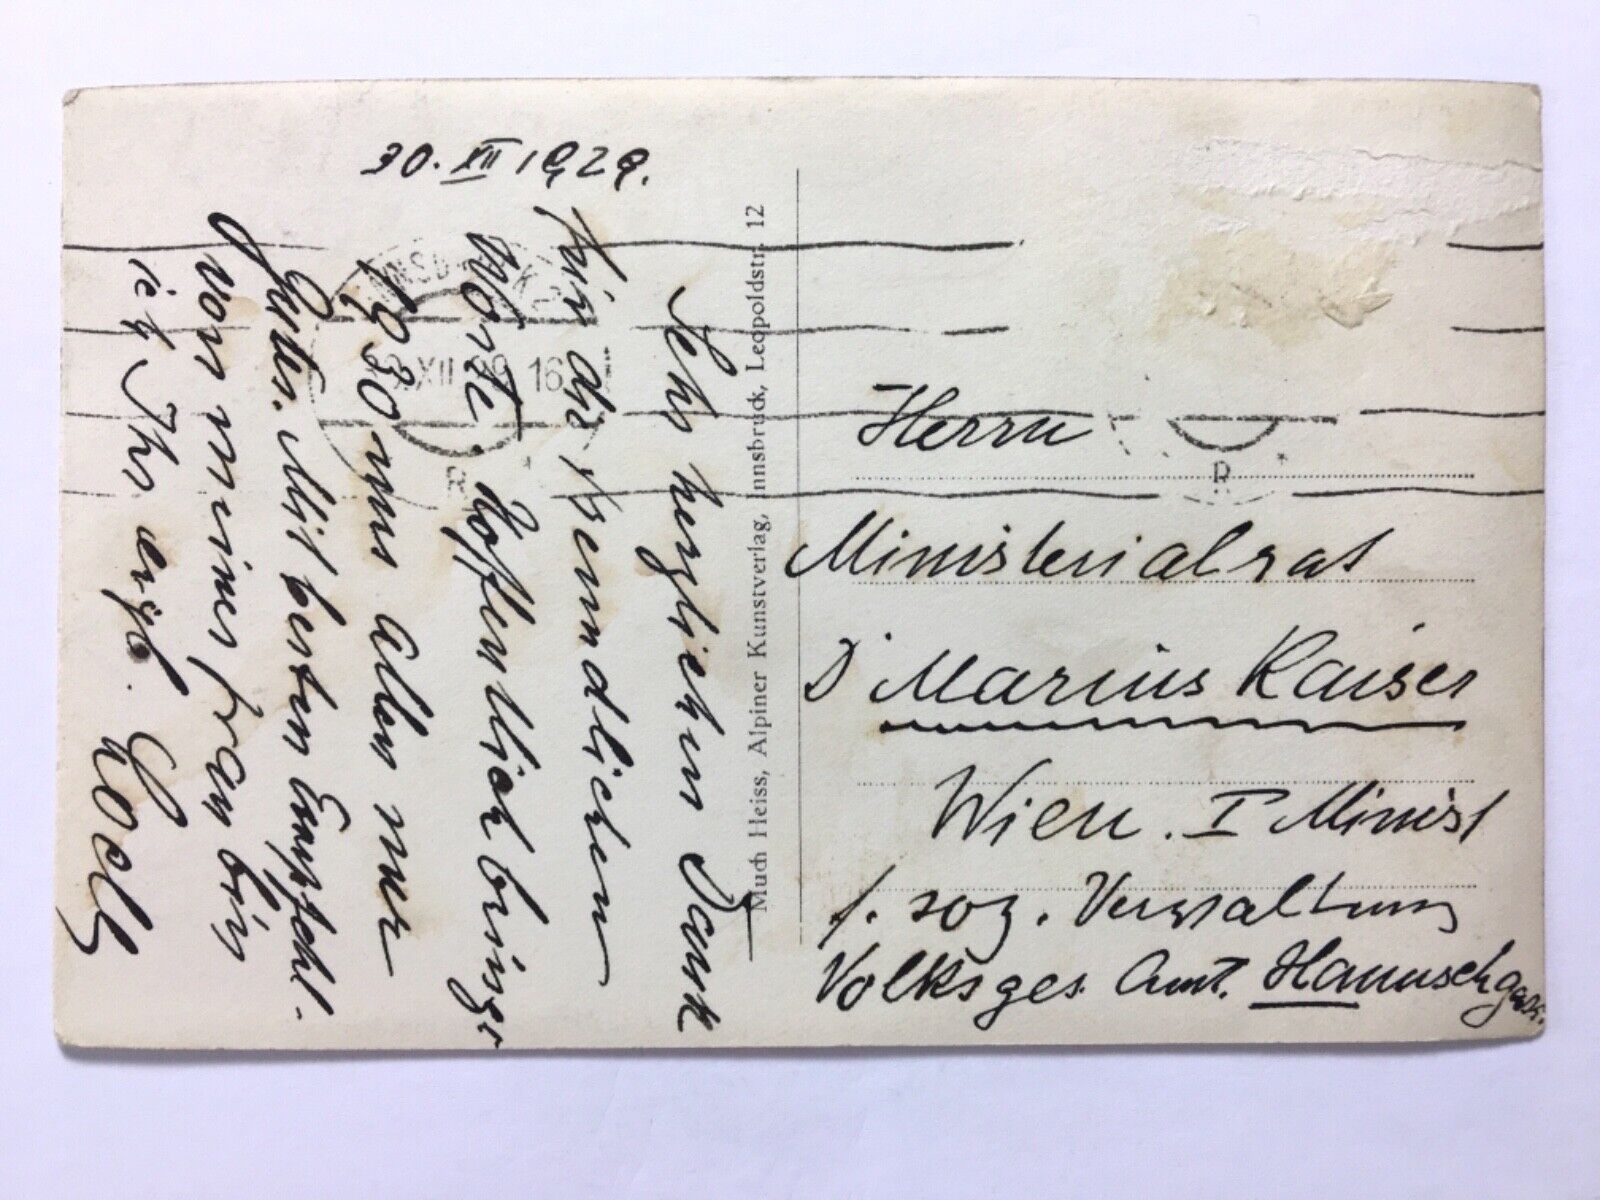 30. XII 1929.
Sehr herzlichen Dank
für die freundlichen
Worte. Hoffentlich bringt
1930 uns allen nur
Gutes. Mit besten Empfehl.
von meiner Frau bin
ich Ihr erg.
Much Heiss, Alpiner Kunstverlag, Innsbruck, Leopoldstr. 12
XII 29 16
R
R
Herrn
Ministerialrat
Dr Marius Kaiser
Wien. I Minist
f. soz. Verwaltung
Volksges. Amt. Hanuschgasse.